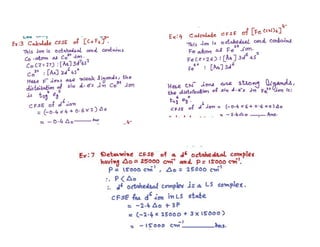 Ex:3 Calculate CFSE of [CoF₆]³⁻.
This ion is octahedral and contains
Co-atom as Co³⁺ ion.
Co (Z=27): [Ar] 3d⁷4s²
Co³⁺: [Ar] 3d⁶4s⁰
Here F⁻ ions are weak ligands, the
distribution of six d-e⁻s in Co³⁺ ion
is t₂g⁴ eg²
CFSE of d⁶ ion
= (-0.4×4 + 0.6×2) Δo
= -0.4 Δo Ans
Ex:4 Calculate CFSE of [Fe(CN)₆]⁴⁻
This ion is octahedral and contains
Fe atom as Fe²⁺ ion.
Fe (Z=26): [Ar] 3d⁶4s²
Fe²⁺: [Ar] 3d⁶
Here CN⁻ ions are strong ligands,
the distribution of six d-e⁻s in Fe²⁺ ion is:
t₂g⁶ eg⁰
CFSE of d⁶ ion = (-0.4×6+0.6×0) Δo
= -2.4 Δo Ans
Ex:7 Determine CFSE of a d⁶ octahedral complex
having Δo = 25000 cm⁻¹ and P = 15000 cm⁻¹.
P = 15000 cm⁻¹, Δo = 25000 cm⁻¹
∴ P < Δo
∴ d⁶ octahedral complex is a LS complex.
CFSE for d⁶ ion in LS state
= -2.4 Δo + 3P
= (-2.4 × 25000 + 3 × 15000)
= -15000 cm⁻¹ Ans.